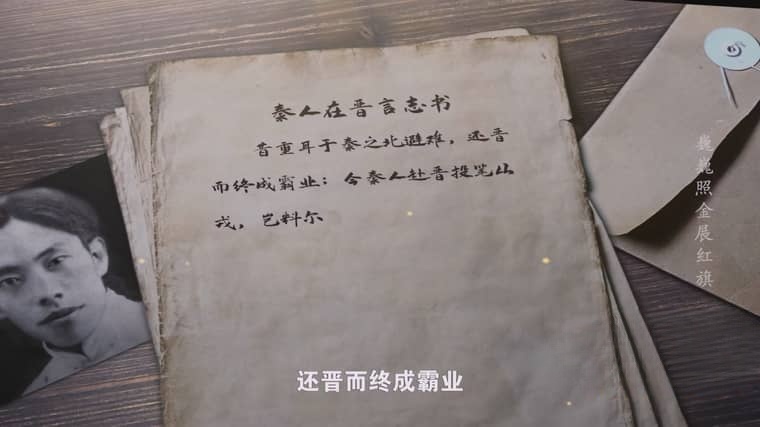 秦人在晋言志书
昔重耳于秦之北避难，还晋
而终成霸业；今秦人赴晋投笔山
戎，岂料尔
巍巍照金展红旗
还晋而终成霸业